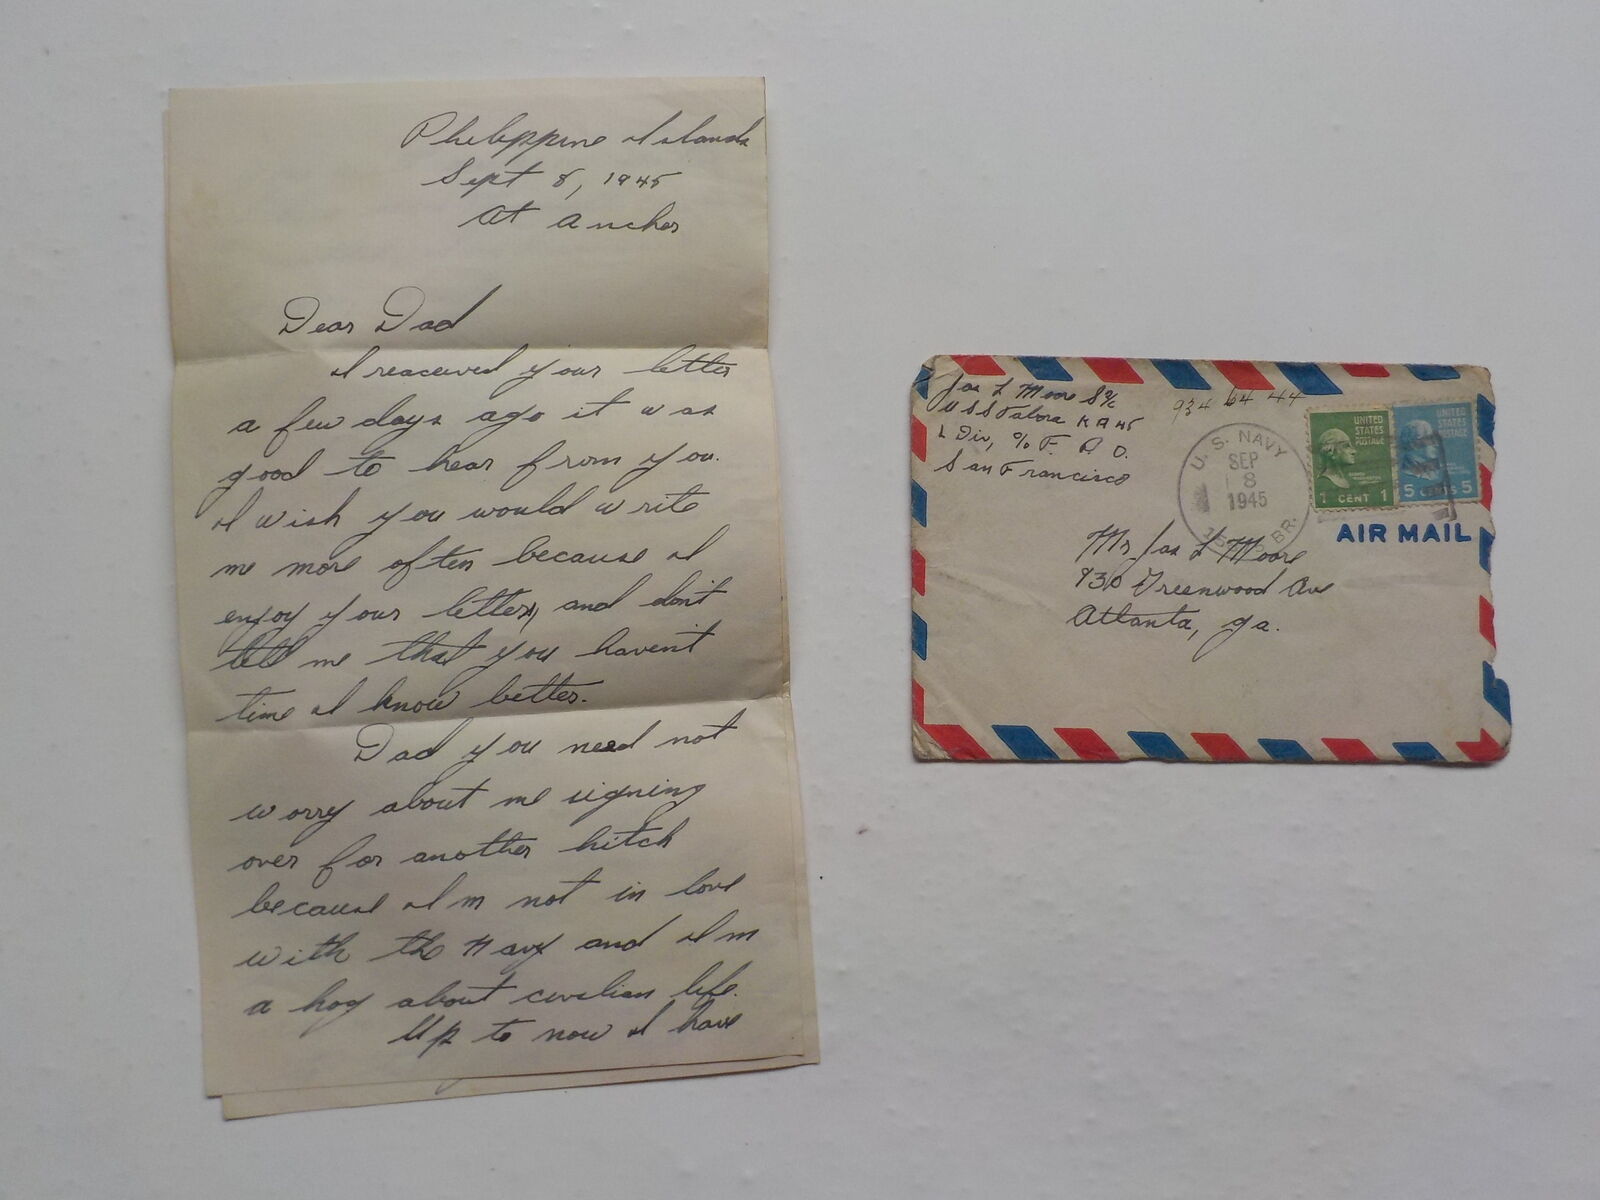 Philippine Islands
Sept 8, 1945
At Anchor
Dear Dad
I reaceived your letter
a few days ago it was
good to hear from you.
I wish you would write
me more often because I
enjoy your letters, and don't
tell me that you haven't
time I know better.
Dad you need not
worry about me signing
over for another hitch
because I'm not in love
with the Navy and I'm
a hog about civilian life.
Up to now I have
Jas L Moore S 2/c
934 64 44
USS Talora KA 45
L Div, c/o F. P. O.
San Francisco
U. S. NAVY
SEP
8
1945
BR.
UNITED
STATES
POSTAGE
1 CENT 1
UNITED
STATES
POSTAGE
5 CENTS 5
AIR MAIL
Mr Jas L Moore
930 Greenwood Ave
Atlanta, ga.